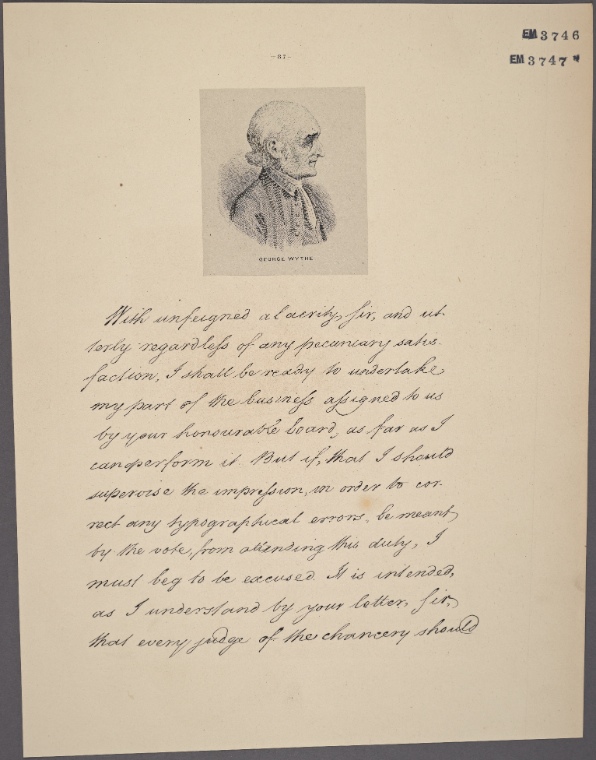 EM3746
EM3747
-87-
GEORGE WYTHE
With unfeigned alacrity, sir, and ut-
terly regardless of any pecuniary satis-
faction, I shall be ready to undertake
my part of the business assigned to us
by your honourable board, as far as I
can perform it. But if, that I should
supervise the impression, in order to cor-
rect any typographical errors, be meant,
by the vote, from attending this duty, I
must beg to be excused. It is intended,
as I understand by your letter, sir,
that every judge of the chancery should